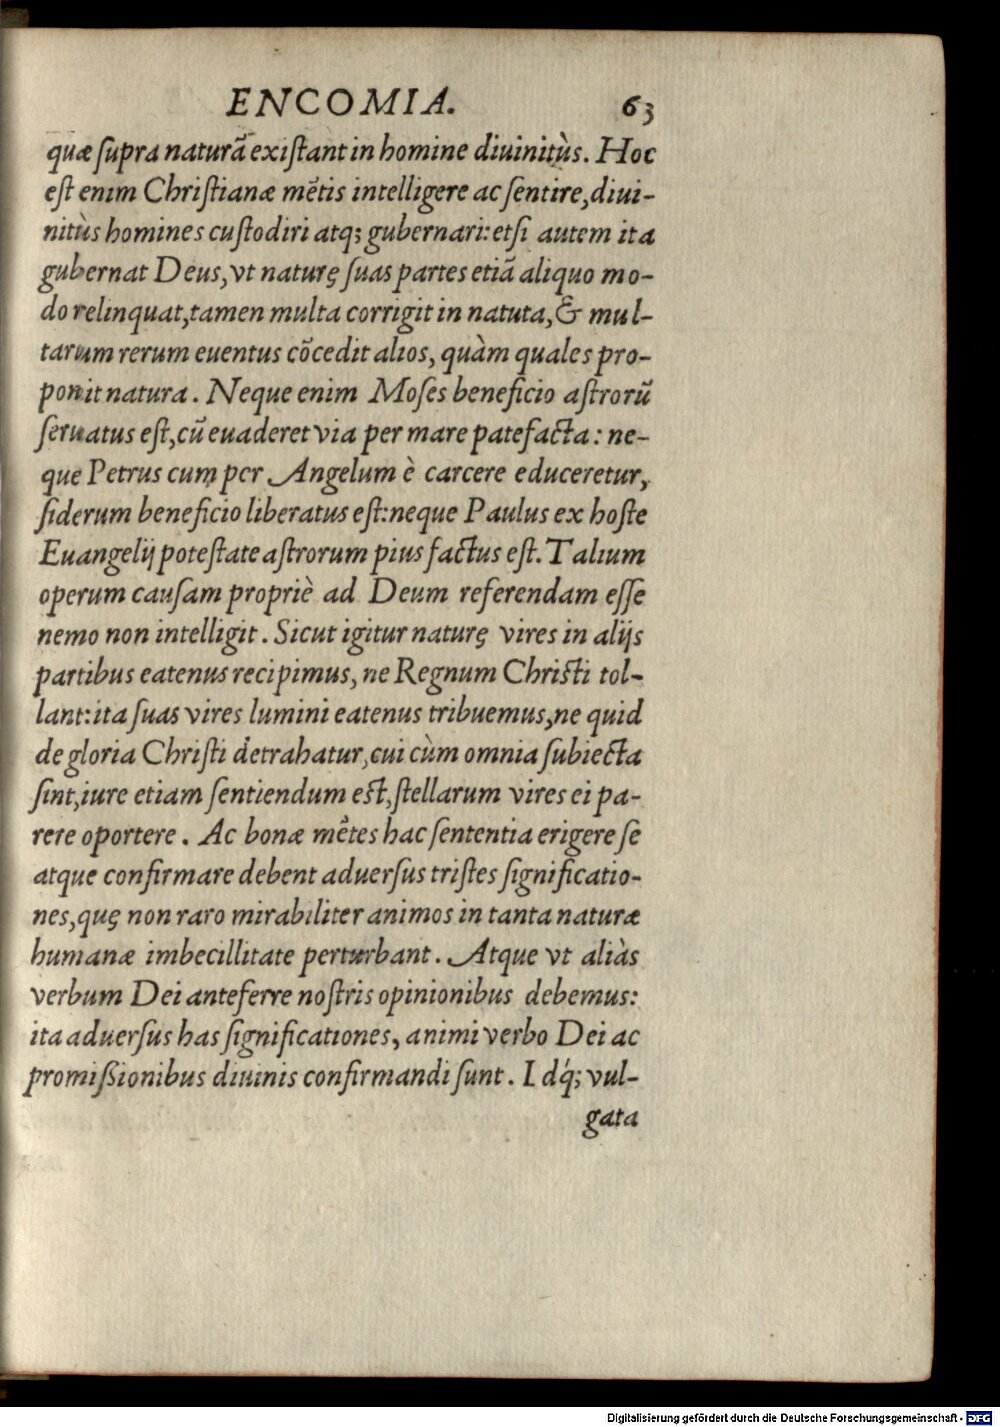 ENCOMIA. 63
quæ ſupra naturã exiſtant in homine diuinitùs. Hoc
eſt enim Chriſtianæ mẽtis intelligere ac ſentire, diui-
nitùs homines cuſtodiri atq; gubernari: etſi autem ita
gubernat Deus, vt naturę ſuas partes etiã aliquo mo-
do relinquat, tamen multa corrigit in natuta, & mul-
tarum rerum euentus cõcedit alios, quàm quales pro-
ponit natura. Neque enim Moſes beneficio aſtrorũ
ſeruatus eſt, cũ euaderet via per mare patefacta: ne-
que Petrus cum per Angelum è carcere educeretur,
ſiderum beneficio liberatus eſt: neque Paulus ex hoſte
Euangelij poteſtate aſtrorum pius factus eſt. Talium
operum cauſam propriè ad Deum referendam eſſe
nemo non intelligit. Sicut igitur naturę vires in alijs
partibus eatenus recipimus, ne Regnum Chriſti tol-
lant: ita ſuas vires lumini eatenus tribuemus, ne quid
de gloria Chriſti detrahatur, cui cùm omnia ſubiecta
ſint, iure etiam ſentiendum eſt, ſtellarum vires ei pa-
rere oportere. Ac bonæ mẽtes hac ſententia erigere ſe
atque confirmare debent aduerſus triſtes ſignificatio-
nes, quę non raro mirabiliter animos in tanta naturæ
humanæ imbecillitate perturbant. Atque vt aliàs
verbum Dei anteferre noſtris opinionibus debemus:
ita aduerſus has ſignificationes, animi verbo Dei ac
promißionibus diuinis confirmandi ſunt. Idq́; vul-
gata
Digitalisierung gefördert durch die Deutsche Forschungsgemeinschaft - DFG